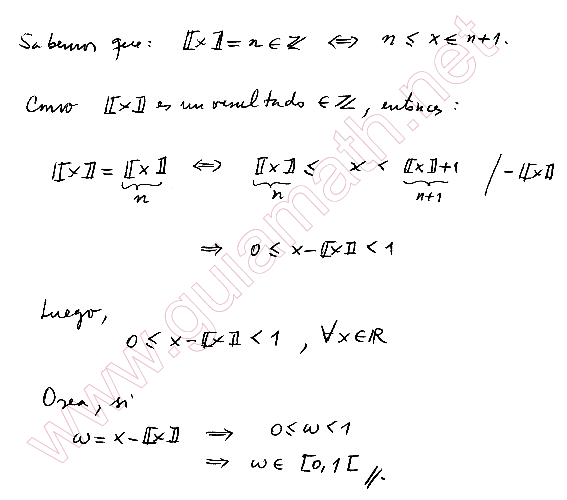 Sabemos que: ⟦x⟧ = n ∈ ℤ ⇔ n ≤ x < n+1.
Como ⟦x⟧ es un resultado ∈ ℤ, entonces:
⟦x⟧ = ⟦x⟧ ⇔ ⟦x⟧ ≤ x < ⟦x⟧+1 / -⟦x⟧
n n n+1
⇒ 0 ≤ x-⟦x⟧ < 1
Luego,
0 ≤ x-⟦x⟧ < 1 , ∀x∈ℝ
Osea, si
ω = x-⟦x⟧ ⇒ 0 ≤ ω < 1
⇒ ω ∈ [0,1[ //.
www.guiamath.net